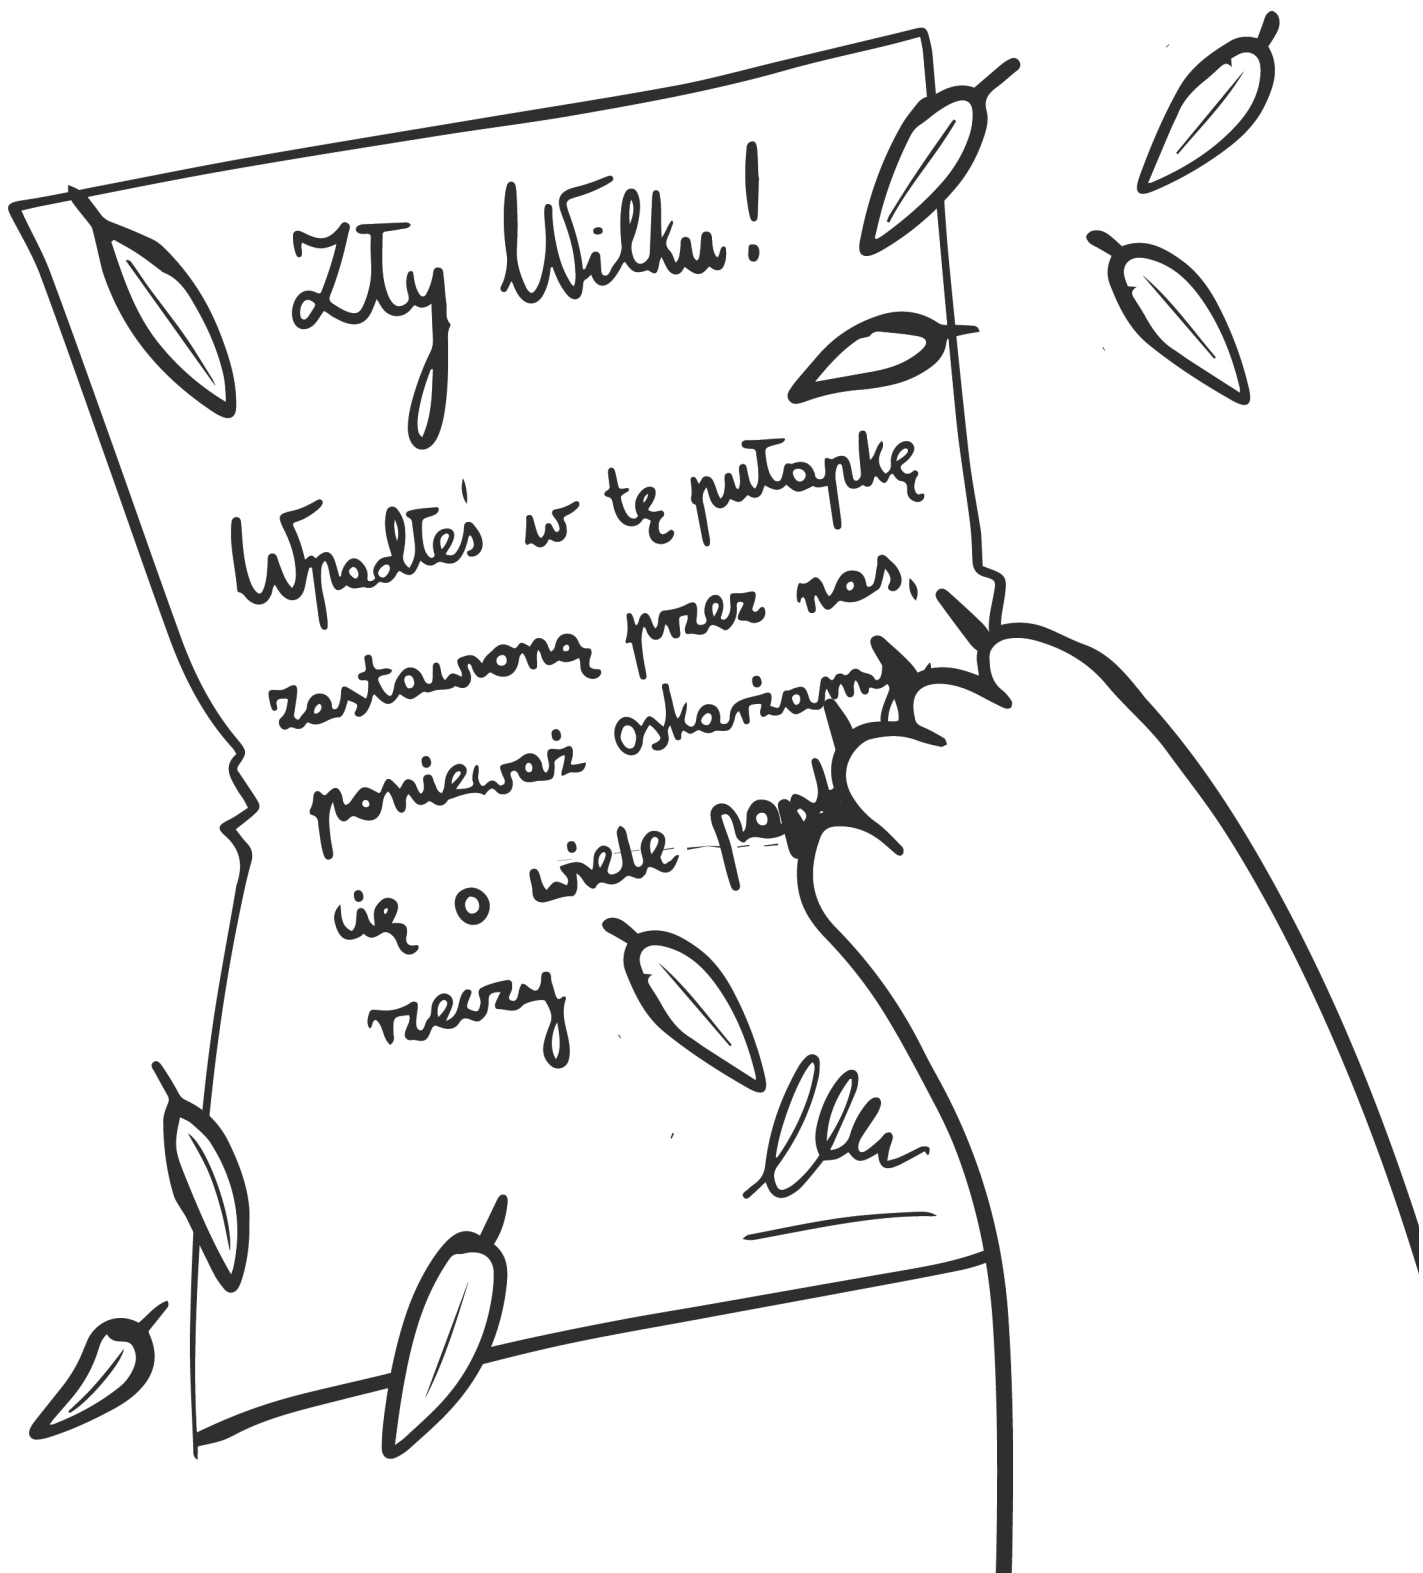 Zły Wilku!
Wpadłeś w tę pułapkę
zastawioną przez nas,
ponieważ oskarżamy
cię o wiele
rzeczy